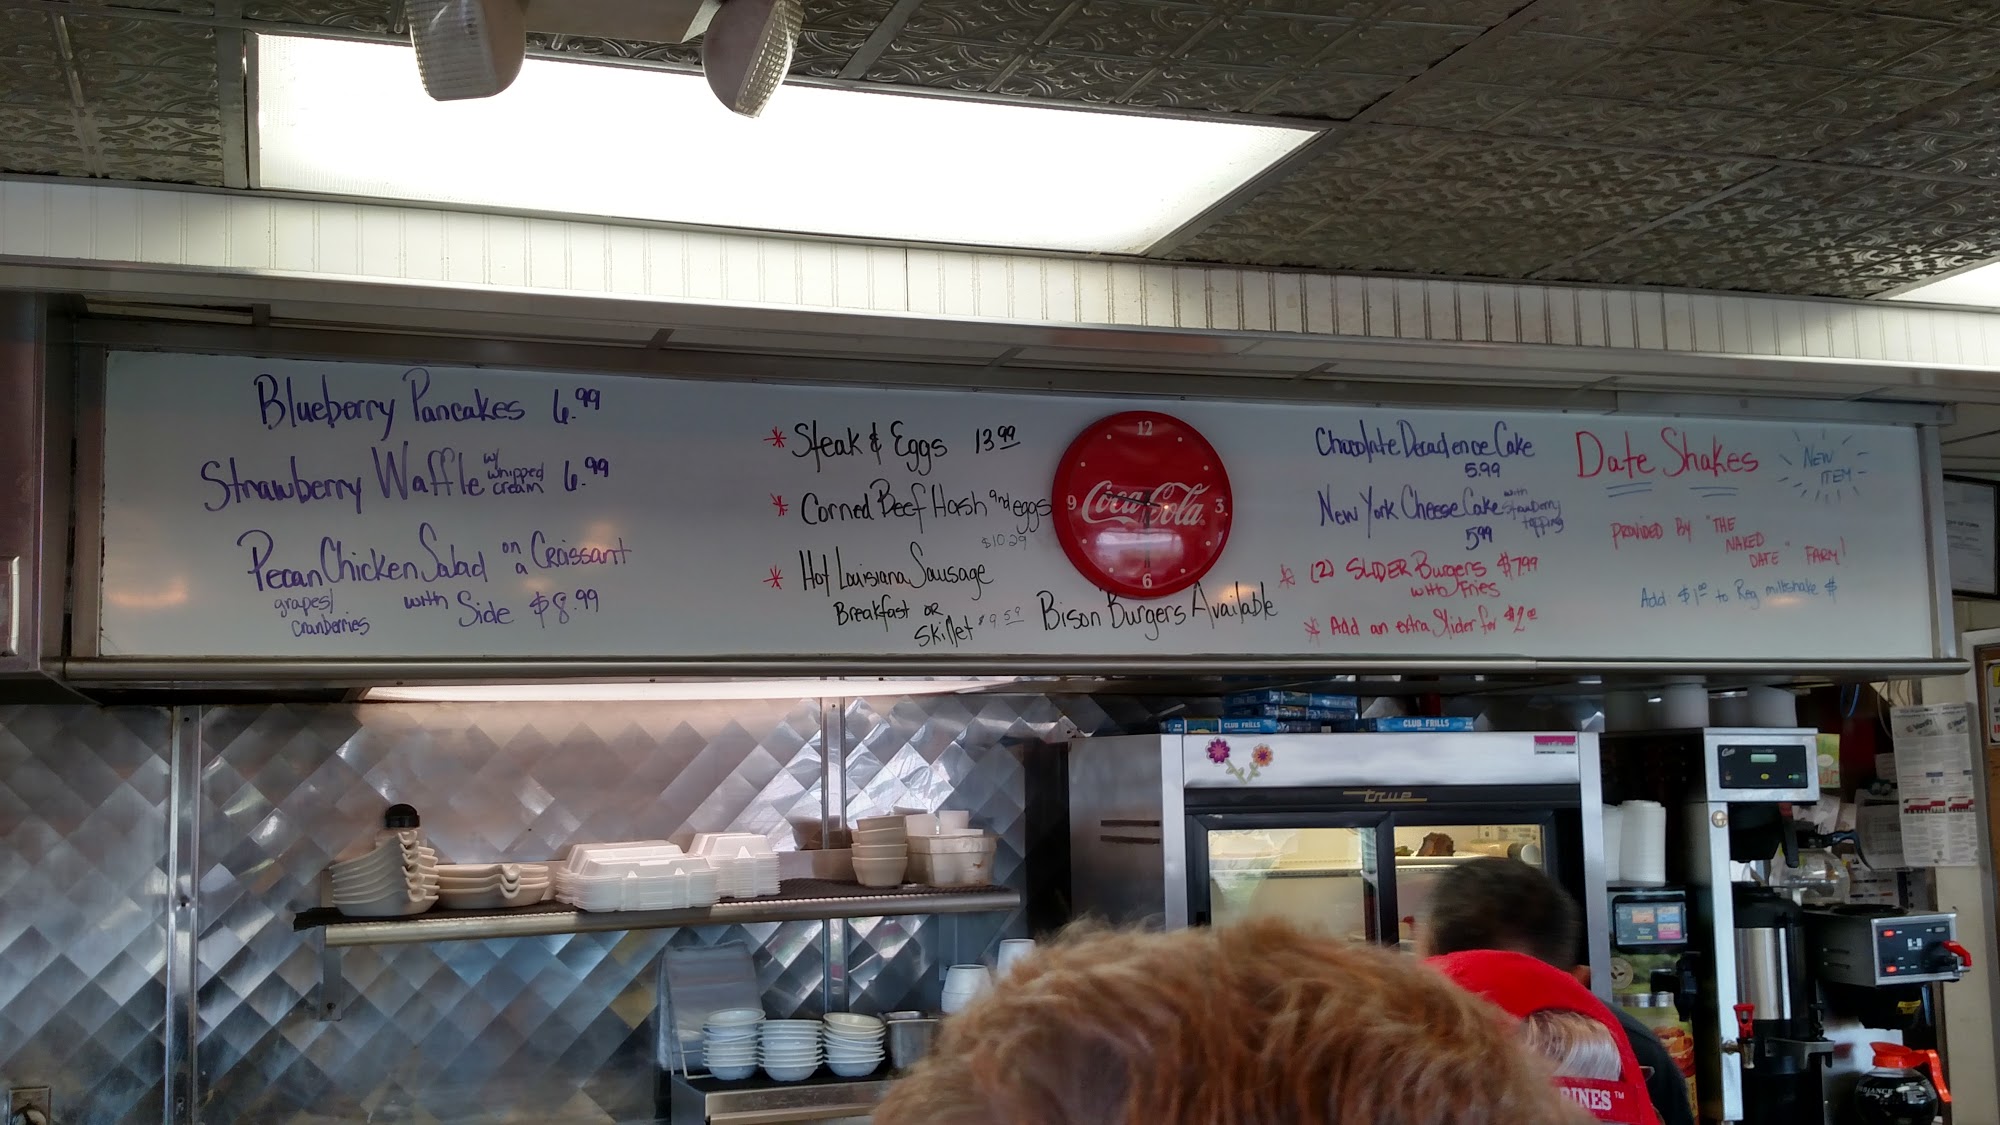 Blueberry Pancakes 6.99
Strawberry Waffle w/ whipped cream 6.99
Pecan Chicken Salad on a Croissant
grapes/
cranberries
with Side $8.99
* Steak & Eggs 13.99
* Corned Beef Hash and eggs
$10.29
* Hot Louisiana Sausage
Breakfast or
Skillet $9.59
Bison Burgers Available
12
9
3
6
Coca-Cola
Chocolate Decadence Cake
5.99
New York Cheese Cake with strawberry topping
5.99
* (2) SLIDER Burgers $7.99
with Fries
* Add an extra Slider for $2.00
Date Shakes
NEW
ITEM
PROVIDED BY "THE
NAKED
DATE" FARM!
Add $1.00 to Reg milkshake $
CLUB FRILLS
CLUB FRILLS
true
RINES™